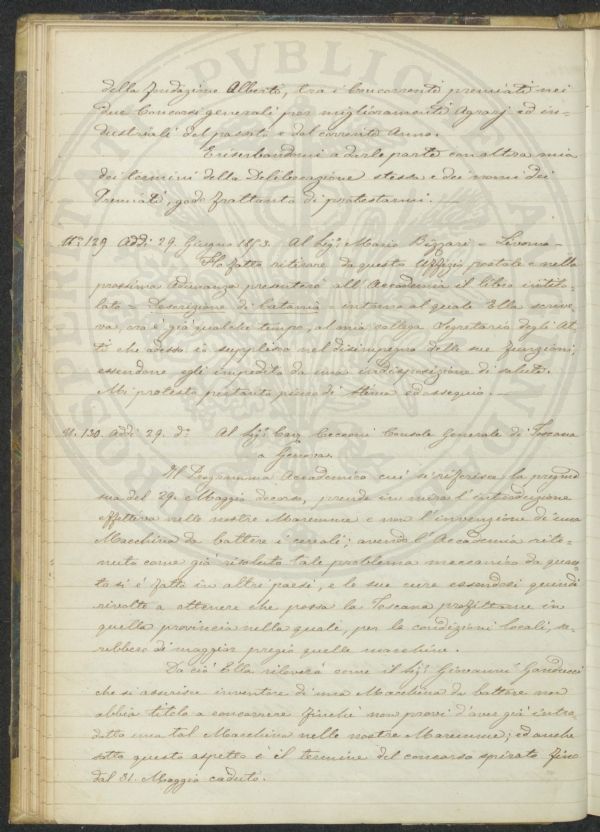 della fondazione Alberti, tra i Concorrenti premiati nei
due Concorsi generali per miglioramenti Agrarj ed in-
dustriali del passato e del corrente Anno.
E riserbandomi a darle parte con altra mia
dei termini della deliberazione stessa e dei nomi dei
Premiati, godo frattanto di protestarmi. —
N.° 129. Addì 29. Giugno 1853. Al Sig.r Mario Bizzari = Livorno =
Ho fatto ritirare da questo Uffizio postale e nella
prossima Adunanza presenterò all'Accademia il libro intito-
lato = Descrizione di Catania = intorno al quale Ella scrive-
va, ora è già qualche tempo, al mio collega Segretario degli At-
ti che adesso io supplisco nel disimpegno delle sue funzioni,
essendone egli impedito da una indisposizione di salute.
Mi protesto pertanto pieno di stima ed ossequio. —
N. 130. Addì 29. d.° Al Sig.r Cav. Cecconi Console Generale di Toscana
a Genova.
Il Programma Accademico cui si riferisce la pregiat
sua del 29. Maggio decorso, prende in mira l'introduzione
effettiva nelle nostre Maremme e non l'invenzione di una
Macchina da battere i cereali; avendo l'Accademia rite-
nuto come già risoluto tale problema meccanico da quan-
to si è fatto in altri paesi, e le sue cure essendosi quindi
rivolte a ottenere che possa la Toscana profittarne in
quella provincia nella quale, per le condizioni locali, sa-
rebbero di maggior pregio quelle macchine.
Da ciò Ella rileverà come il Sig.r Giovanni Ganducci
che si asserisce inventore di una Macchina da battere non
abbia titolo a concorrere finchè non provi d'aver già intro-
dotto una tal Macchina nelle nostre Maremme; ed anche
sotto questo aspetto è il termine del concorso spirato fino
dal 31. Maggio caduto.
PVBLICAE
PROSPERITATI